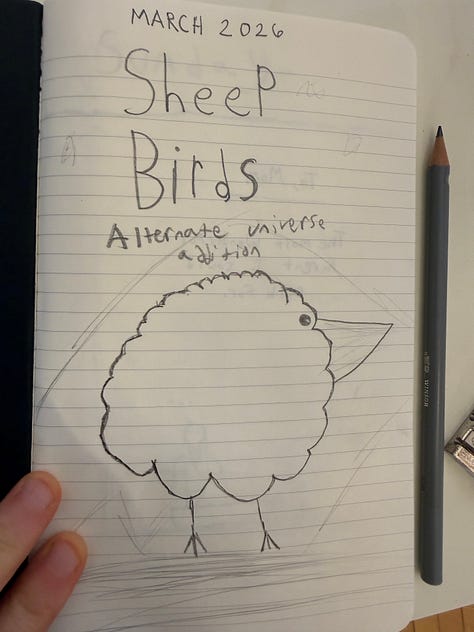 MARCH 2026
Sheep
Birds
Alternate universe
addition